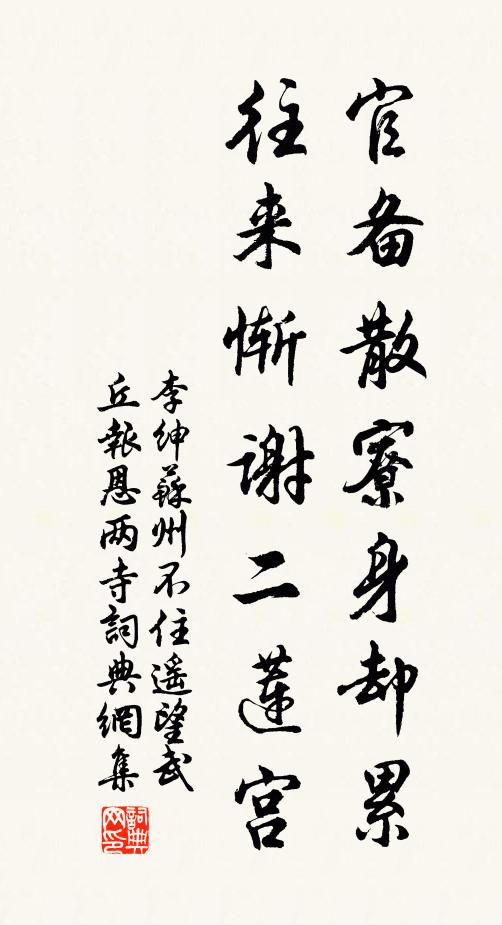 官备散寮身却累
往来惭谢二莲宫
李绅蘇州不住遥望武
丘報恩两寺詞典網集
詞典網印